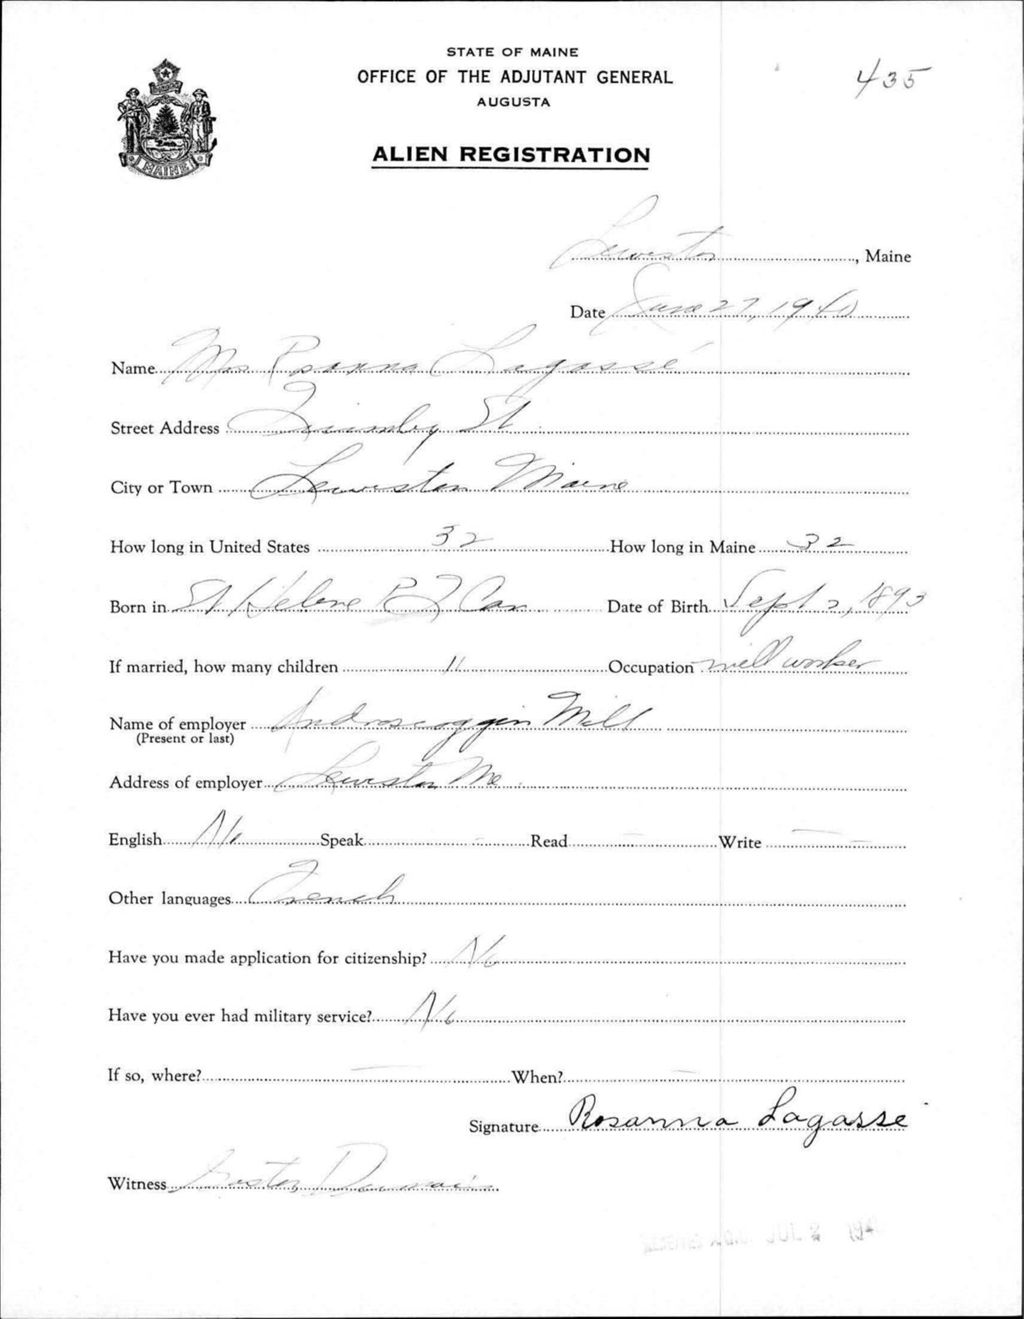 STATE OF MAINE
OFFICE OF THE ADJUTANT GENERAL
AUGUSTA
435
ALIEN REGISTRATION
MAINE
Lewiston, Maine
Date June 27, 1940
Name Mrs Rosanna Lagassé
Street Address Quimby St
City or Town Lewiston Maine
How long in United States 32 How long in Maine 32
Born in St Helene P Q Can Date of Birth Sept 2, 1893
If married, how many children 11 Occupation mill worker
Name of employer Androscoggin Mill
(Present or last)
Address of employer Lewiston Me
English No Speak - Read - Write -
Other languages French
Have you made application for citizenship? No
Have you ever had military service? No
If so, where? - When? -
Signature Rosanna Lagassé
Witness
JUL 2 194